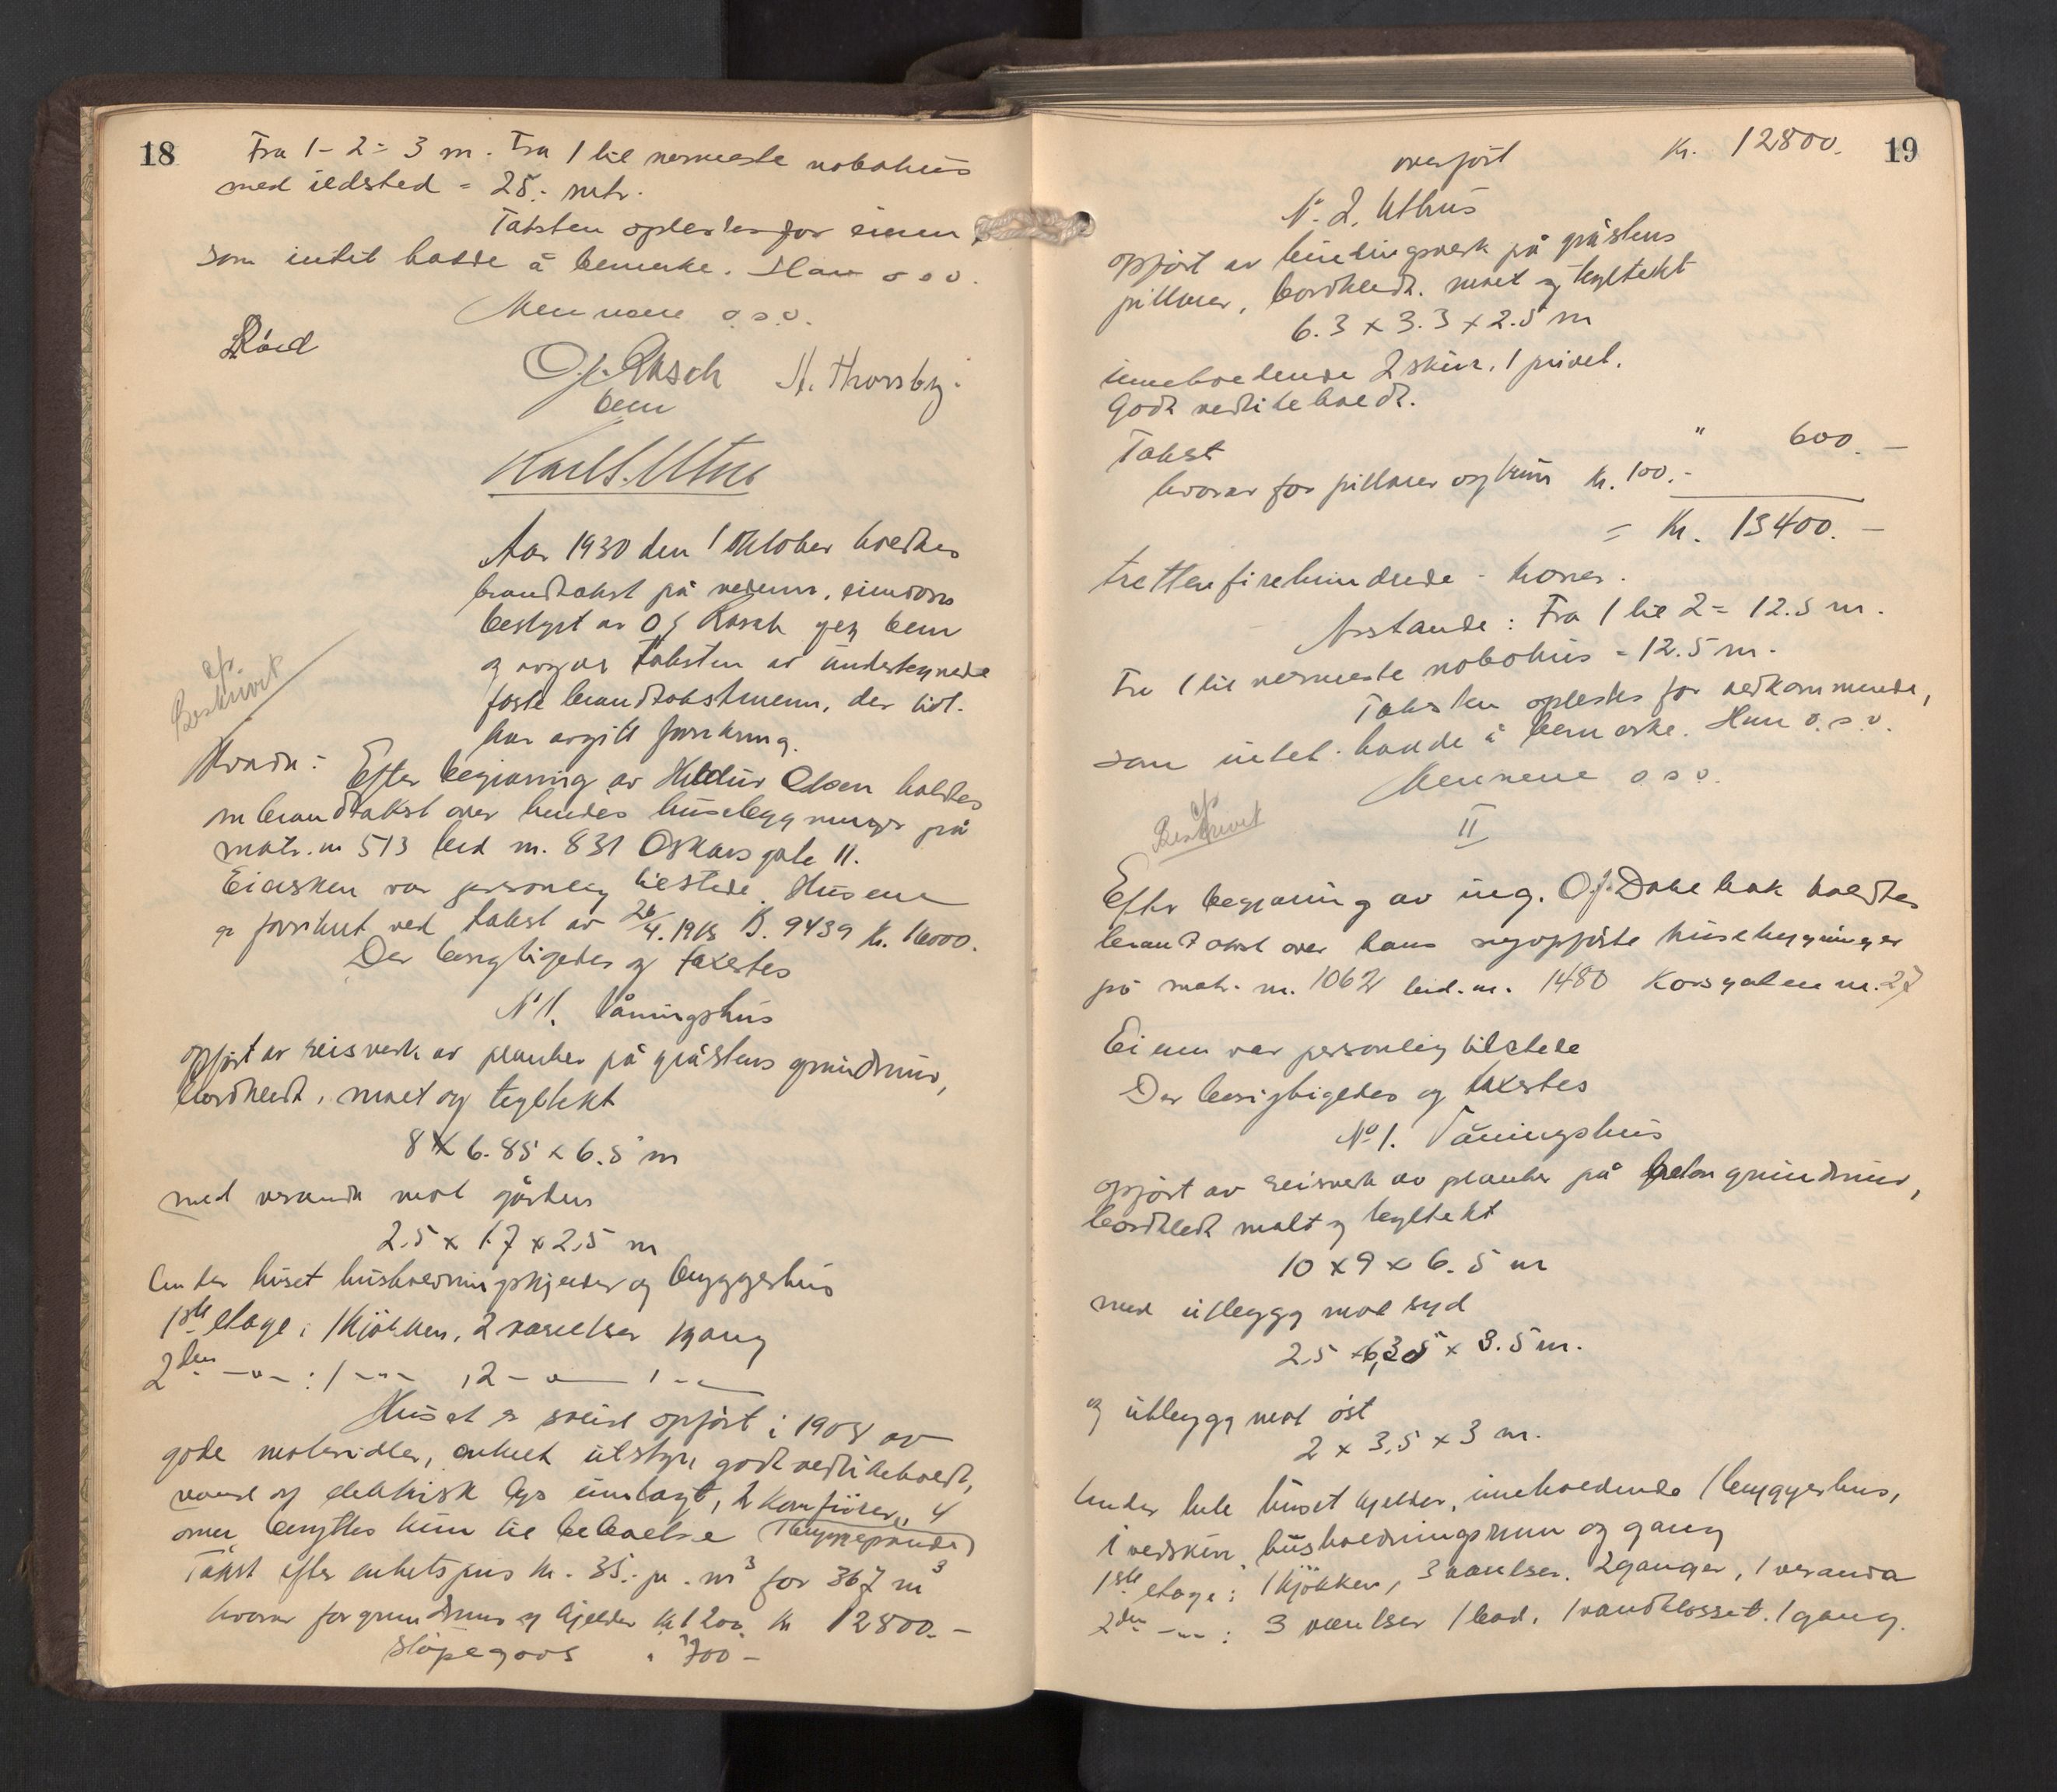 18
Fra 1 - 2 = 3 m. Fra 1 til nermeste nabohus
med ildsted = 25.- mtr.
Taksten oplestes for eieren,
som intet hadde å bemerke. Han o s v.
Mennene o.s.v.
O.J. Rasch H. Thorsby.
bem
Karl S. Utne
Aar 1930 den 1 Oktober holdtes
brandtakst på nedenn. eiendom
bestyrt av O J Rasch gen bem
og avgav taksten av undertegnede
faste brandtakstmenn, der tidl.
har avgitt forsikring.
cfr.
Beskrivet
Efter begjæring av Hildur Olsen holdtes
brandtakst over hendes husebygninger på
matr. nr 513 brd nr. 831 Oskars gate 11.
Eiersken var personlig tilstede. Husene
er forsikret ved takst av 26/4. 1918 B. 9439 Kr. 16000.
Der besigtigedes og taxertes
No 1. Våningshus
opført av reisverk av planker på gråstens grundmur,
bordkledt, malt og tegltekt
8 x 6.85 x 6.5 m
med veranda mot gården
2.5 x 1.7 x 2.5 m
Under huset husholdningskjelder og bryggerhus
1ste etage: 1 kjøkken, 2 værelser 1 gang
2den -"- : 1 -"- , 2 -"- 1 -"-
Huset er solid opført i 1908 av
gode materialer, enkelt utstyr, godt vedlikeholdt,
vand og elektrisk lys innlagt, 2 komfürer, 4
ovner benyttes kun til beboelse 1 bryggepande
Takst efter enhetspris kr. 35.- pr. m3 for 367 m3
hvorav for grundmur og kjelder kr 1200 kr 12800.-
sløpegods " 700 -
19
overført Kr. 12800.
No. 2. Uthus
opført av bindingsverk på gråstens
pillarer, bordkledt. malt og tegltekt
6.3 x 3.3 x 2.5 m
inneholdende 2 skur, 1 privet.
Godt vedlikeholdt.
Takst " 600.-
hvorav for pillarer og brun kr. 100.-
= Kr. 13400.-
trettenfirehundrede - kroner.
Avstande: Fra 1 til 2 = 12.5 m.
Fra 1 til nermeste nabohus = 12.5 m.
Taksten oplestes for vedkommende,
som intet hadde å bemerke. Hun o.s.v.
Mennene o s v.
cfr
Beskrivet
II
Efter begjæring av ing. O.J. Dalebak holdtes
brandtakst over hans nyopførte husebygninger
på matr. nr. 1062 brd. nr. 1480 Korsgaten nr. 27
Eieren var personlig tilstede
Der besigtigedes og taxertes
No 1. Våningshus
opført av reisverk av planker på beton grundmur,
bordkledt malt og tegltekt
10 x 9 x 6.5 m
med utbygg mot syd
2.5 x 6,35 x 3.5 m.
og utbygg mot øst
2 x 3.5 x 3 m.
Under hele huset kjelder, inneholdende 1 bryggerhus,
1 vedskur, husholdningsrum og gang
1ste etage: 1 kjøkken, 3 værelser. 2 ganger, 1 veranda
2den -"- : 3 værelser 1 bad. 1 vandklosset. 1 gang.